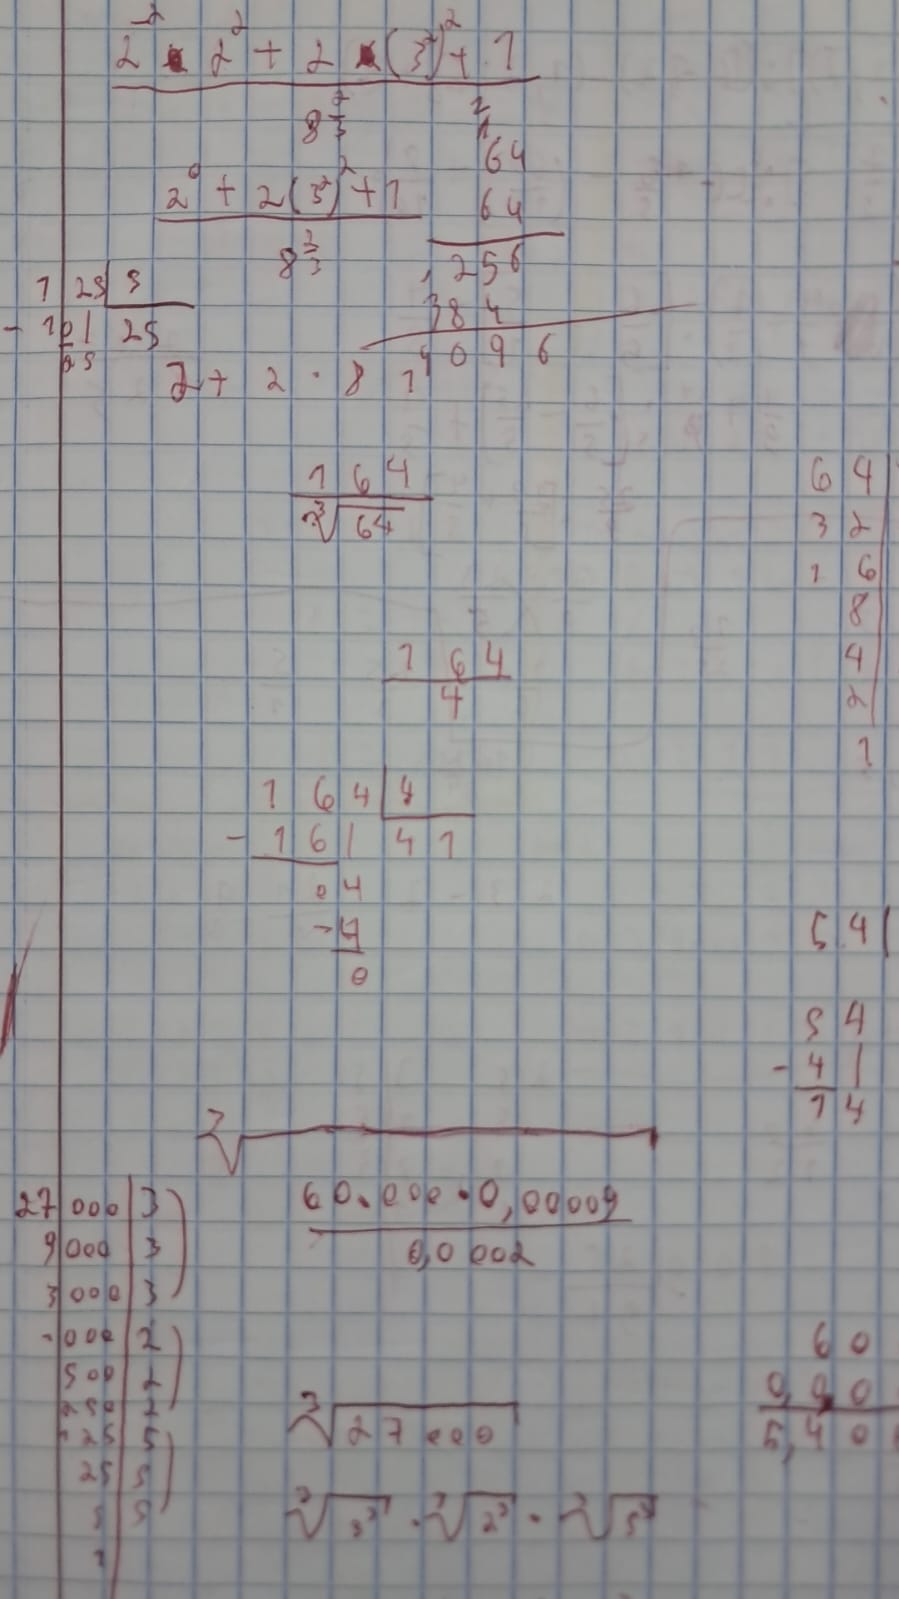 2^-2 · 2^2 + 2 · (3^2)^2 + 1
8^(2/3)
2^0 + 2(3^2)^2 + 1
8^(2/3)
64
64
256
384
4096
125 | 5
- 10 | 25
25
2 + 2 · 81
164
∛64
164
4
164 | 4
- 16 | 41
04
- 4
0
64
32
16
8
4
2
1
54
54
- 4
14
∛
60.000 · 0,00009
0,0002
27 000 | 3
9 000 | 3
3 000 | 3
000 | 2
500 | 2
250 | 2
125 | 5
25 | 5
5 | 5
1
60
0,00
5,40
∛27 000
∛3^3 · ∛2^3 · ∛5^3